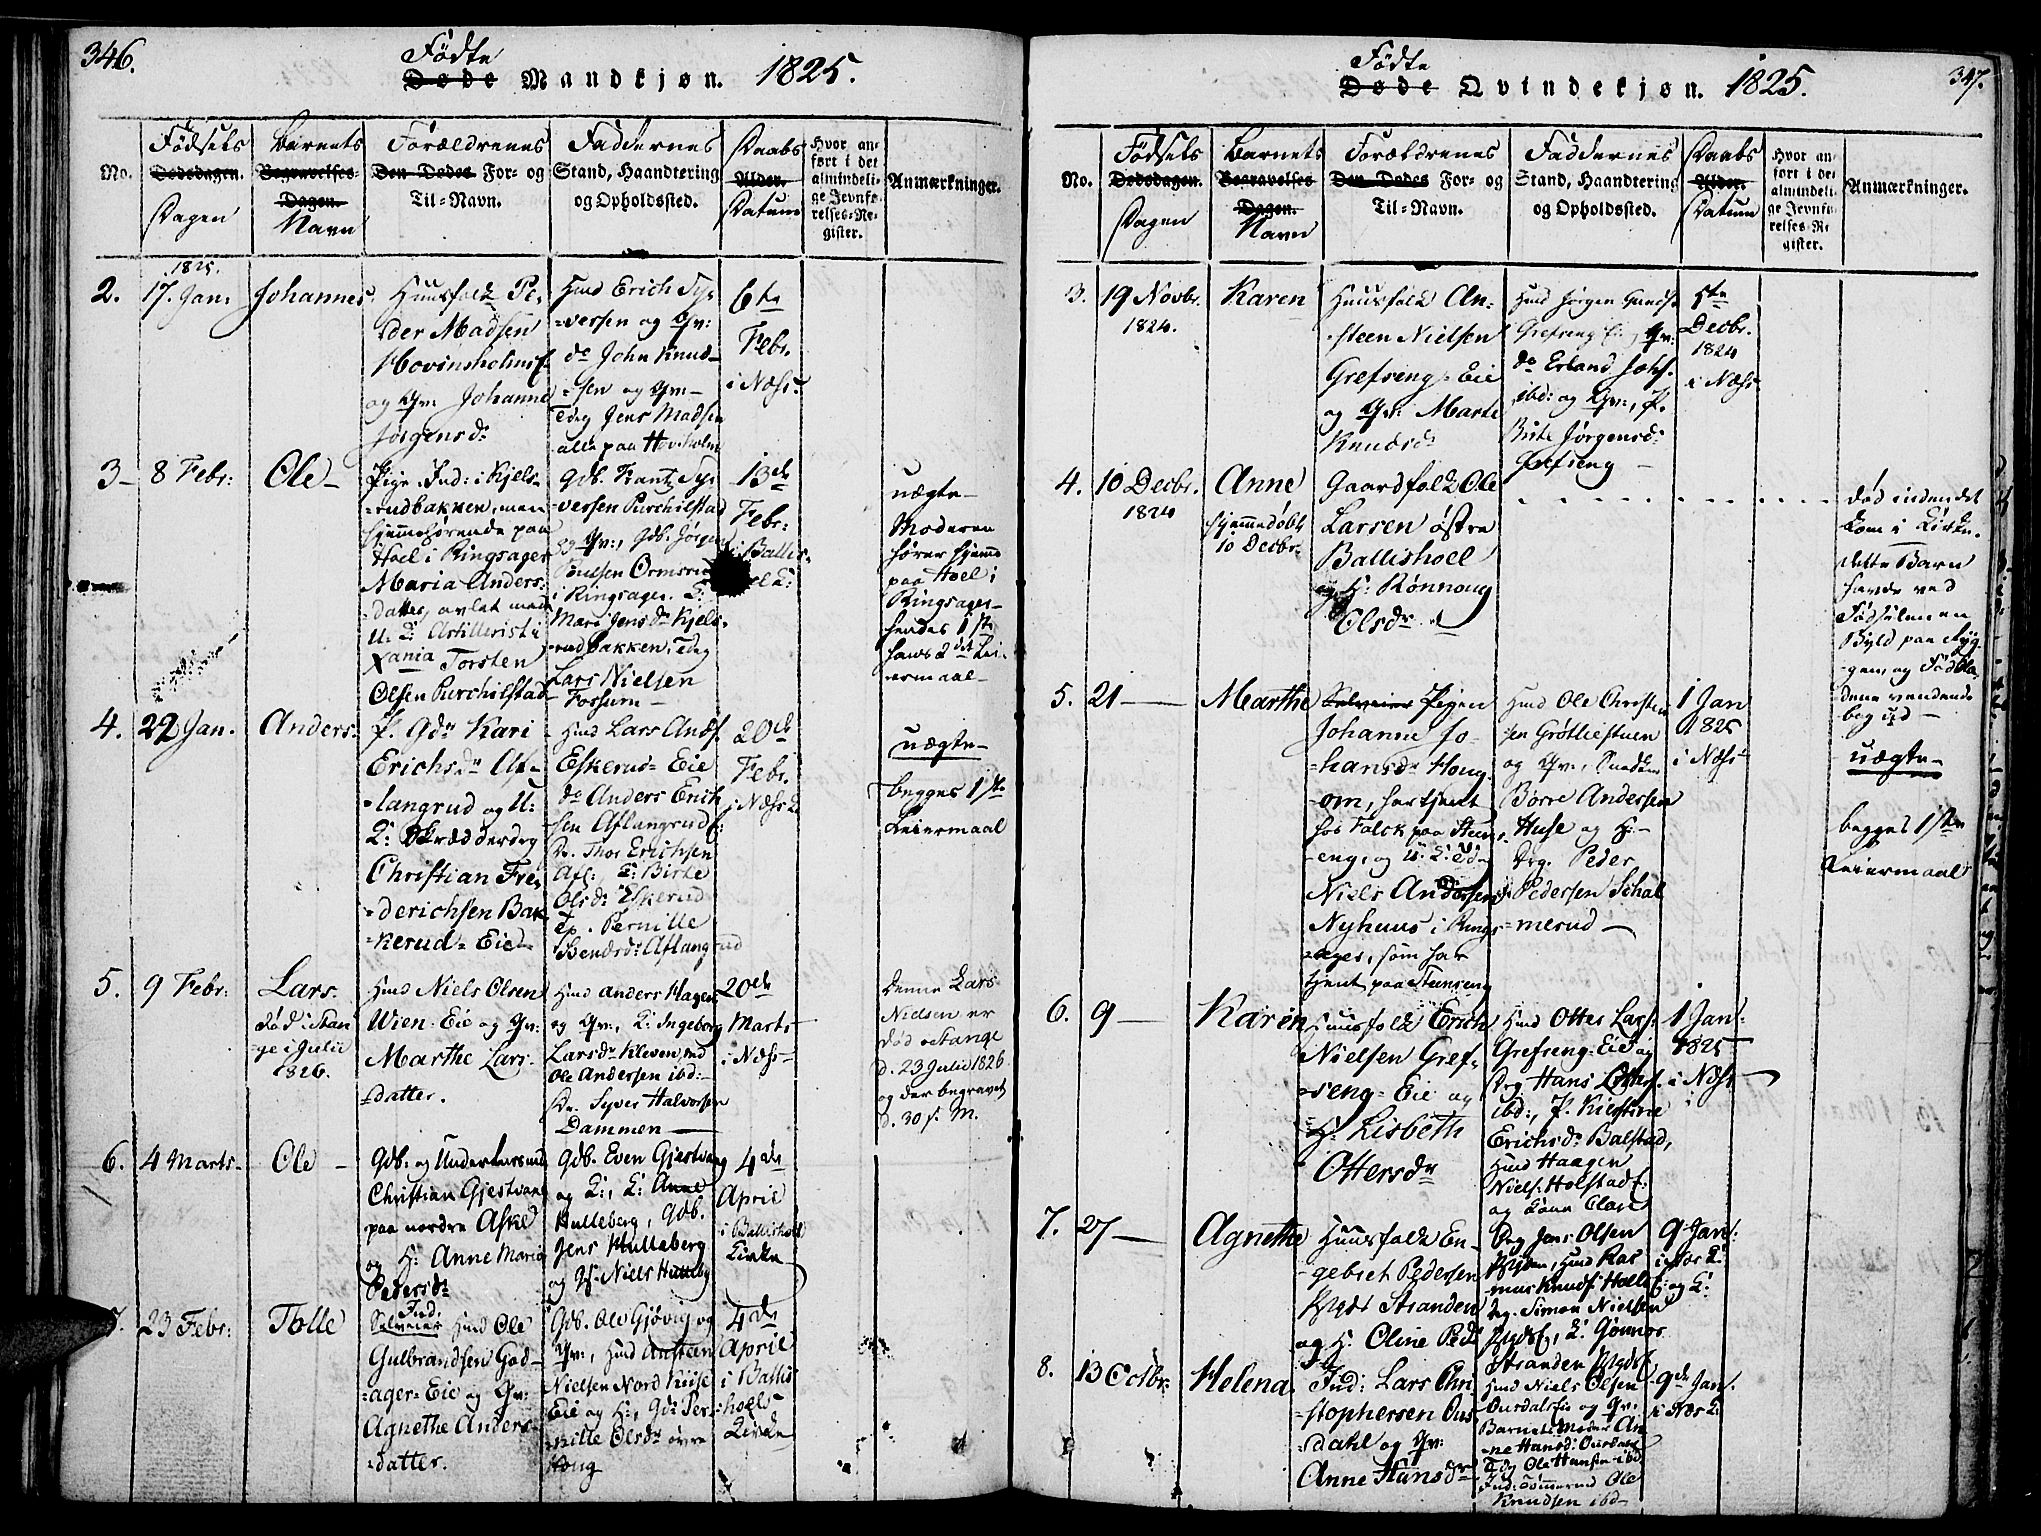 346.
Fødte
Døde Mandkjøn. 1825.
No.
Fødsels
Dødsdagen.
Dagen
Barnets
Begravelses-
Dagen.
Navn
Forældrenes
Den Dødes For- og
Til-Navn.
Faddernes
Stand, Haandtering
og Opholdssted.
Daabs
Alder.
Datum
Hvor an-
ført i det
almindeli-
ge Jevnfø-
relses-Re-
gister.
Anmærkninger.
2.
1825.
17. Jan:
Johannes
Huusfolk Pe-
der Madsen
Hovinsholms E.
og Qv: Johanne
Jørgensdr
Hmd Erich Sy-
versen og Qv:
do John Knud-
sen og Qv:
Tdrg Jens Madsen
alle paa Hovsholm
6te
Febr.
i Næss
3
8 Febr:
Ole
Pige Ind: i Kjels-
rudbakken, men
hjemmehørende paa
Hoel i Ringsager
Maria Anders-
datter, avlet med
U: K: Artillerist i
Xania Torsten
Olsen Purchilstad
Gdb. Frantz Sy-
versen Purchilstad
og Qv:, Gdb. Jørgen
Poulsen Ormsrud
i Ringsager. K:
Mari Jensdr Kjels-
rudbakken, Tdrg
Lars Nielsen
Fossum
13de
Febr:
i Ballis-
uægte
Moderen
hører hjemme
paa Hoel i
Ringsager
hendes 1ste
hans 2det Lei-
ermaal
4.
22 Jan.
Anders
P. Gdr Kari
Erichsdr Af-
langrud og U:
K: Skrædderdrg
Christian Fre-
derichsen Bak-
kerud Eie
Hmd Lars Ands.
Eskerud Eie
do Anders Erich-
sen Aflangrud E.
Dr. Thor Erichsen
Afl:, K: Birte
Olsd: Eskerud
Tp. Pernille
Bendsdr Aflangrud
20de
Febr.
i Næss K
uægte
begges 1ste
Leiermaal
5.
9 Febr:
Lars
død i Stan-
ge i Julii
1826.
Hmd Niels Olsen
Wien Eie og Qv:
Marthe Lars-
datter.
Hmd Anders Hagen
og Qv:, K: Ingeborg
Larsdr Kleven, md
Ole Andersen ibd:
Dr. Syver Halvorsen
Dammen
20de
Marts
i Næss
Denne Lars
Nielsen er
død i Stange
d. 23 Julii 1826
og der begravet
d. 30 s. M.
6.
4 Marts
Ole
Gdb. og Underlensmd
Christian Gjestvang
paa nordre Aske
og H: Anne Maria
Pedersdr
Gdb. Even Gjestvang
og K:, K: Anne
Hulleberg, Gdb.
Jens Hulleberg
og Niels Hulleberg
4de
April
i Ballishoel
Kirke
7.
23 Febr:
Tolle
Ind.
Selveier Hmd Ole
Gulbrandsen God-
ager Eie og Qv:
Agnethe Anders-
datter.
Gdb. Ole Gjøvig og
Qv:, Hmd Ansteen
Nielsen Nord Kiise
Eie og H:, Gdr Per-
nille Olsdr øvre
Houg
4de
April
i Ballis-
hoels
Kirke
Fødte
Døde Qvindekjøn. 1825.
347.
No.
Fødsels
Dødsdagen.
Dagen
Barnets
Begravelses
Dagen.
Navn
Forældrenes
Den Dødes For- og
Til-Navn.
Faddernes
Stand, Haandtering
og Opholdssted.
Daabs
Alder.
Datum
Hvor an-
ført i det
almindeli-
ge Jevnfø-
relses-Re-
gister.
Anmærkninger.
3.
19 Novbr.
1824.
Karen
Huusfolk An-
steen Nielsen
Grefseng Eie
og Qv: Marte
Knudsdr
Hmd Jørgen Gunds.
Grefseng E:, Qv:
do Erland Johs.
ibd: og Qv:, P.
Birte Jørgensd:
Grefseng
5te
Decbr.
1824
i Næss
4.
10 Decbr.
1824
Anne
hjemmedøbt
10 Decbr.
Gaardfolk Ole
Larsen østre
Ballishoel
og H: Rønnoug
Olsdr
død inden det
kom i Kirke.
dette Barn
havde ved
Fødselen en
Byld paa Ryg-
gen, og Fødbla-
dene vendende
bag ud
5.
21
Marthe
Selveier Pigen
Johanne Jo-
hansdr Houg-
om, har tjent
hos Falck paa Stens-
eng, og U: K: Tdrg
Niels Andersen
Nyhuus i Rings-
ager, som har
tjent paa Stenseng
Hmd Ole Christen-
sen Grøtliestuen
og Qv:, Snedker
Børre Andersen
Huse og H:
Drg. Peder
Pedersen Schal-
merud
1 Jan
1825
i Næss
uægte
begges 1ste
Leiermaal
6.
9
Karen
Huusfolk Erich
Nielsen Gref-
seng Eie og
H: Lisbeth
Ottersdr
Hmd Otter Lars.
Grefseng Eie og
Drg Hans Otters.
ibd:, P. Kirstine
Erichsdr Balstad,
Hmd Haagen
Niels: Holstad E.
og Kone Olave
1 Jan.
1825
i Næss
7.
27
Agnethe
Huusfolk En-
gebret Pedersen
Stranden
og H: Oline Peds
Drg Jens Olsen
Hmd Ras-
mus Knuds. Holls E:
Drg. Simon Nielsen
K: Gunnor
Stranden
9 Jan.
i Næs K:
8.
13 Octbr:
Helena
Ind: Lars Chri-
stophersen Ous-
dahl og Qv:
Anne Hansdr
Hmd Niels Olsen
Ousdals Eie og Qv:
Barnets Moder An-
ne Hansd: Ousdahl
Tdrg Ole Hansen ibd
Ind: Tømmermd Ole
Knudsen ibd
9de Jan.
i Næs K: